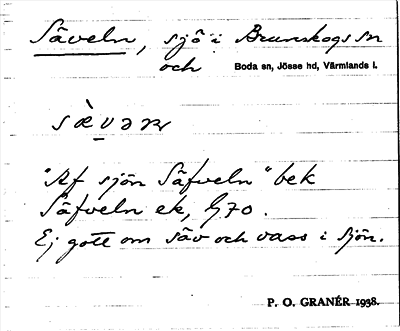 Säveln, sjö i Brunskogs sn
och Boda sn, Jösse hd, Värmlands l.
"Af sjön Säfveln" bek
Säfveln ek, G70.
Ej gott om säv och vass i sjön.
P. O. GRANÉR 1938.